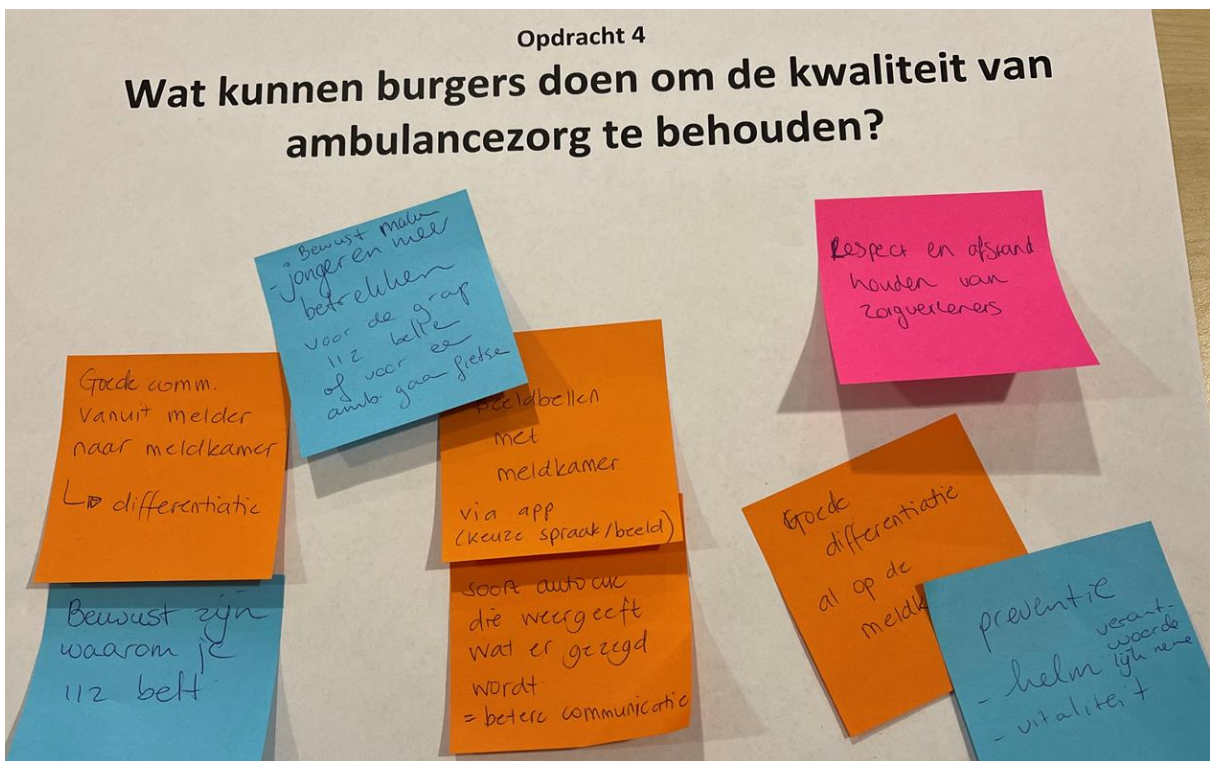 Opdracht 4
Wat kunnen burgers doen om de kwaliteit van
ambulancezorg te behouden?
Bewust maken
- jongeren meer
betrekken
voor de grap
112 belle
of voor ee
amb. gaan fietse
Respect en afstand
houden van
zorgverleners
Goede comm.
vanuit melder
naar meldkamer
↳ differentiatie
Beeldbellen
met
meldkamer
via app
(keuze spraak/beeld)
Goede
differentiatie
al op de
meldk
Bewust zijn
waarom je
112 belt
soort
die weergeeft
wat er gezegd
wordt
= betere communicatie
preventie
- helm
- vitaliteit
verant-
woorde
lijk neme